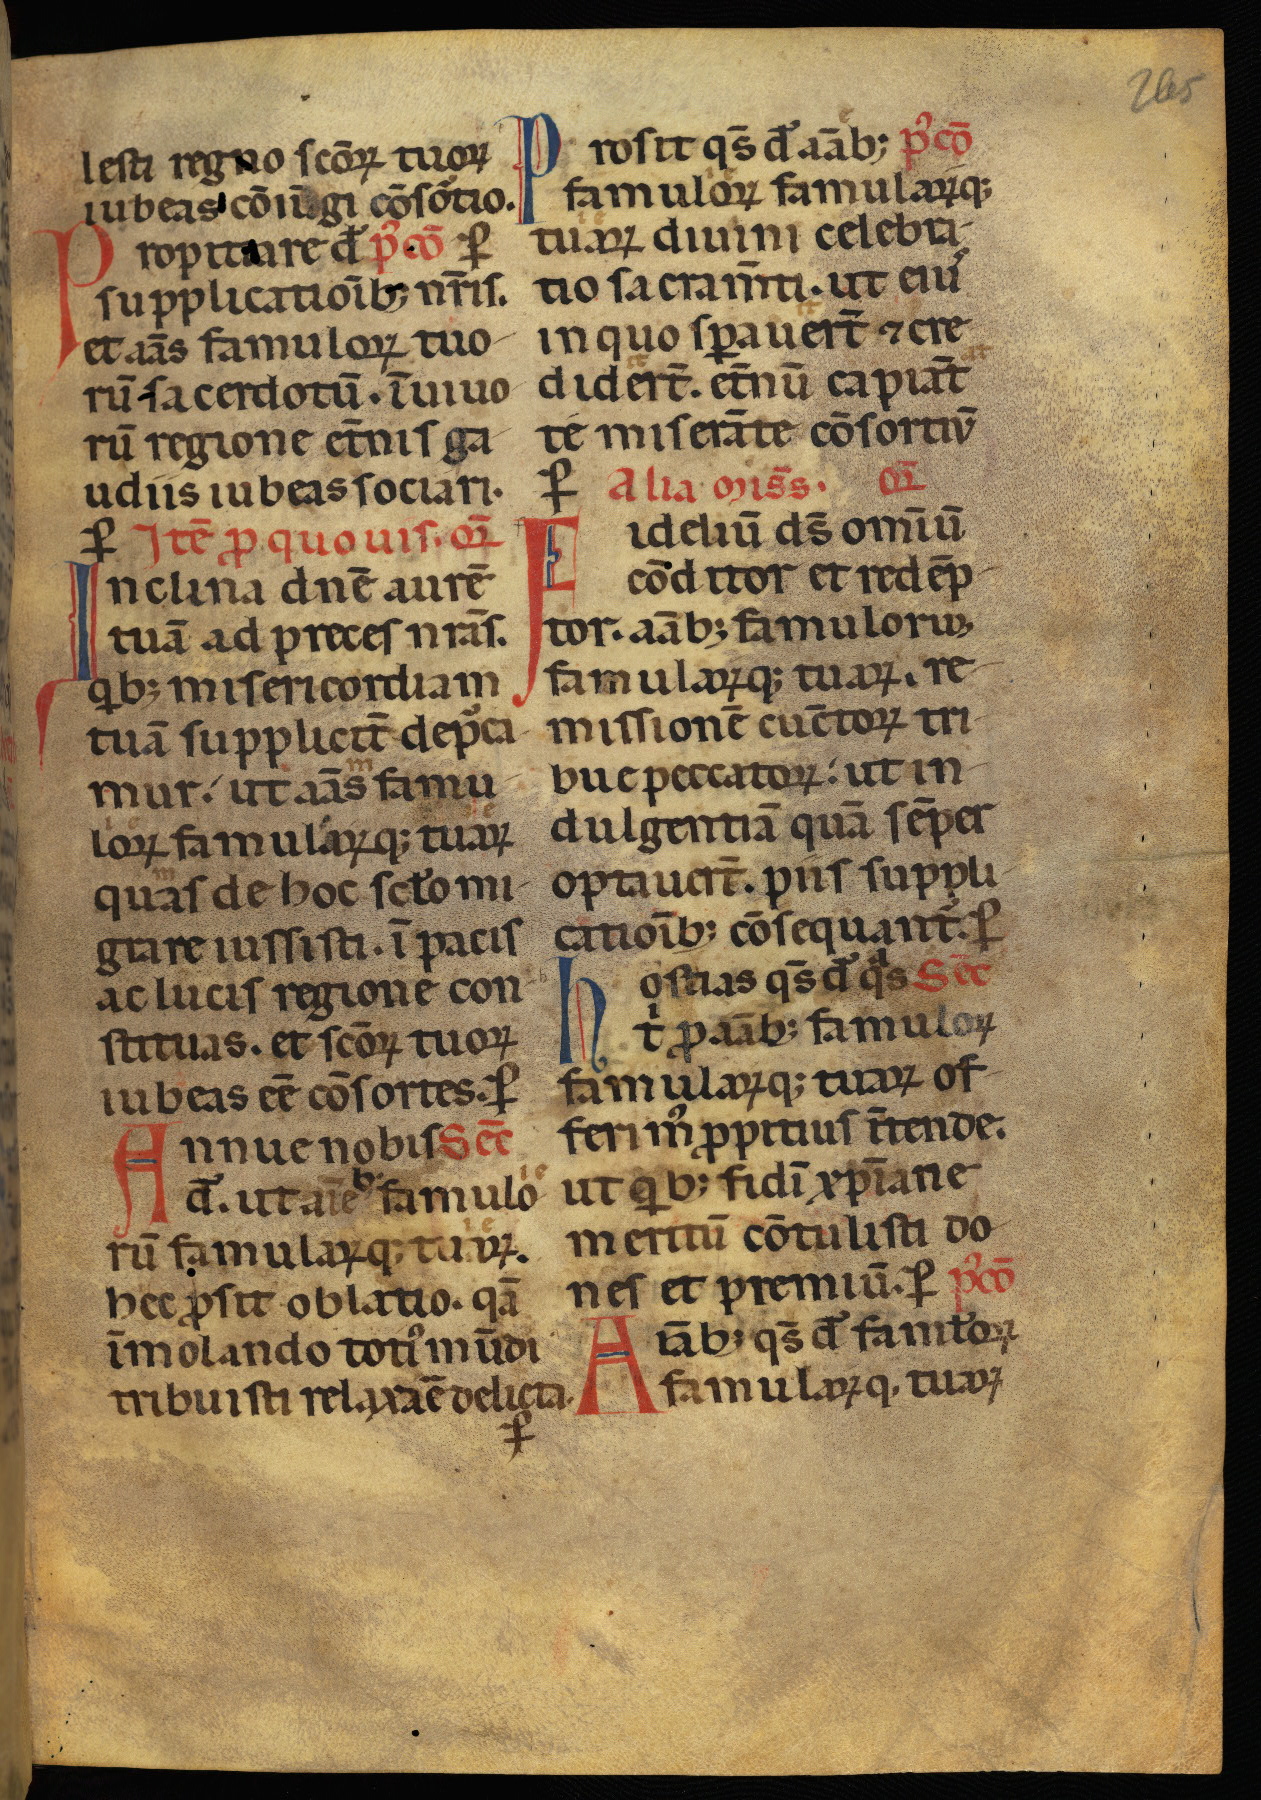 265
lesti regno scōꝝ tuoꝝ
iubeas cōiūgi cōsortio.
Propitiare d̄s p̄ꝰcō ꝑ
supplicatiōib; nr̄is.
et aās famuloꝝ tuo
rū sacerdotū. ī uiuo
rū regione et̄nis ga
udiis iubeas sociari.
ꝑ Itē ꝓ quouis. oꝝ̄
Inclina dn̄e aurē
tuā ad preces nrās.
qꝫ b; misericordiam
tuā supplicit̄ dep̄ca
mur. ut aās famu
loꝝ famulaꝝq; tuaꝝ
quas de hoc sc̄lo mi
grare iussisti. ī pacis
ac lucis regione con
stituas. et scōꝝ tuoꝝ
iubeas eē cōsortes. ꝑ
Annue nobis Sec̄
d̄. ut aīeb; famulo
rū famulaꝝq; tuaꝝ.
hec ꝓsit oblatio. qā
īmolando totiꝰ mūdi
tribuisti relaxaē delicta.
ꝑ
Prosit qs̄ d̄ aāb; p̄ꝰcō
famuloꝝ famulaꝝq;
tuaꝝ diuini celebra
tio sacram̄ti. ut eiuꝰ
in quo sꝑauert̄ ⁊ cre
didert̄. et̄nū capiāt
te miserāte cōsortiū
ꝑ Alia miss̄. oꝝ̄
Fideliū ds̄ omīū
cōditor et redēp
tor. aāb; famuloruꝫ
famulaꝝq; tuaꝝ. re
missionē cūctoꝝ tri
bue peccatoꝝ: ut in
dulgentiā quā sēper
optauert̄. piis suppli
catiōib; cōsequant᷑. ꝑ
hostias qs̄ d̄ qs Sec̄
t ꝓ aāb; famuloꝝ
famulaꝝq; tuaꝝ of
ferimꝰ ꝓpitius īt̄ende.
ut qb; fidī xp̄iane
meritū cōtulisti do
nes et premiū. ꝑ p̄ꝰcō
Aīāb; qs̄ d̄ famłoꝝ
famulaꝝq. tuaꝝ